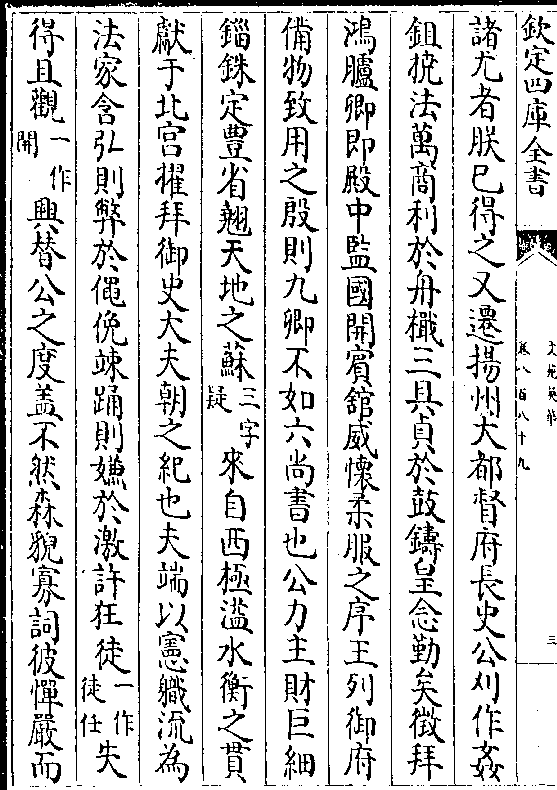 欽定四庫全書
文苑英華
卷八百八十九
三
諸尤者朕已得之又遷揚州大都督府長史公刈作姦
鉏梲法萬商利於舟檝三具貞於鼓鑄皇念勤矣徵拜
鴻臚卿即殿中監國開賓舘威懷柔服之序王列御府
備物致用之殷則九卿不如六尚書也公力主財巨細
錙銖定豐省翹天地之蘇三字疑來自西極滋水衡之貫
獻于北宮擢拜御史大夫朝之紀也夫端以憲軄流為
法家含弘則弊於僶俛竦踊則嫌於激訐狂徒一作徒仕失
得且觀一作開興替公之度盖不然森貌寡詞彼憚嚴而